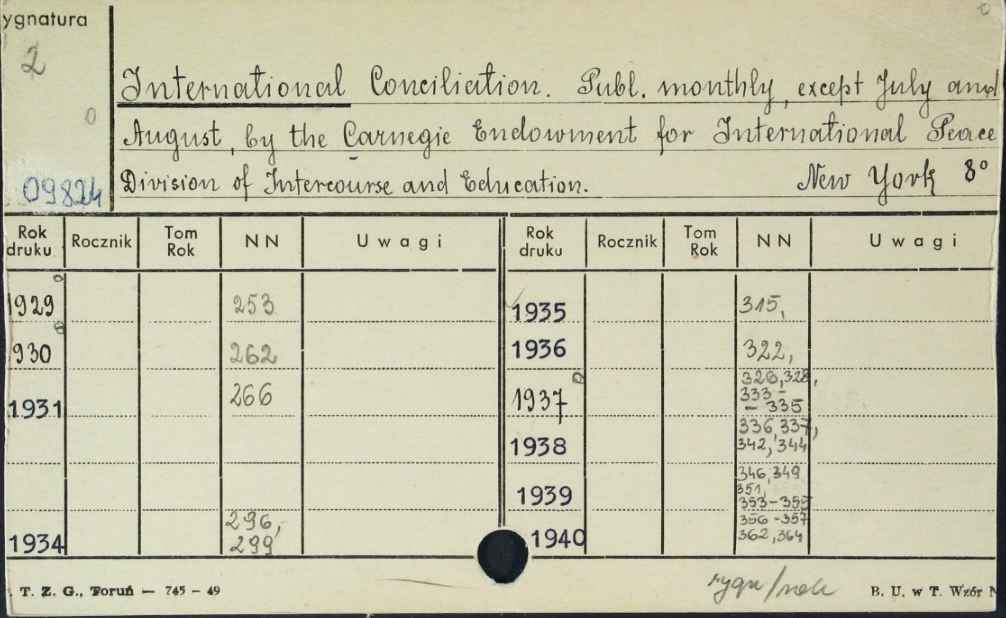 ygnatura
2
International Conciliation. Publ. monthly, except July and
August, by the Carnegie Endowment for International Peace
09824 Division of Intercourse and Education. New York 8°
Rok druku Rocznik Tom Rok NN Uwagi Rok druku Rocznik Tom Rok NN Uwagi
1929 253 1935 315,
930 262 1936 322,
1931 266 1937 326, 328, 333 - - 335
1938 336, 337, 342, 344
1939 346, 349 351, 353-355
1934 296, 299 1940 356-357 362, 364
T. Z. G., Toruń — 745 - 49 B. U. w T. Wzór N